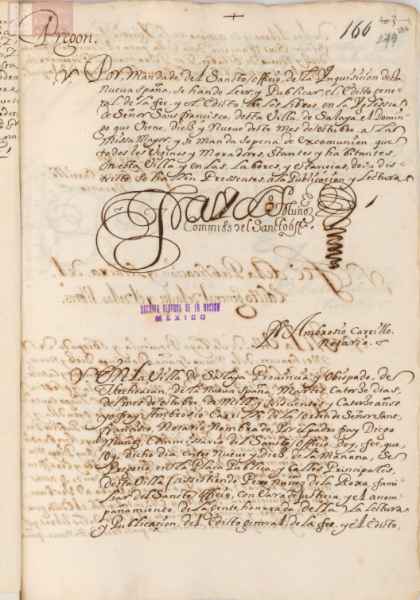 166
Pregon.
Por Mandado del Sancto officio de la Inquisicion de la
nueva españa se han de Leer y Publicar el Edicto gene-
ral de la fee, y el Edicto de los Libros en la Yglesia
de Señor San francisco, desta Villa de Salaya, el Domin-
go que viene, diez y Nueve deste Mes de octubre a la
Missa Mayor, y se manda so pena de excomunion que
todos los Vezinos y Moradores, Stantes y habitantes,
en esta Villa y en las Labores, y estancias, de su dis-
tricto se hallen Pressentes, a la Publicacion y Lectura
Muñoz
Commiss.º del Sancto off.º
SECRETA
DE LA NACION
MEXICO
Fr. Ambrosio Carrillo
Notario.
En la Villa de Salaya Provincia y Obispado, de
Mechuacan, de la Nueva España, Martes, Catorze dias,
del mes de octubre de Mill y Seiscientos, y Catorze años
yo fray Ambrosio Carrillo de la orden de Señor San,
francisco Notario Nombrado, Por el padre fray Diego
Muñoz, Commissario del Sancto officio, doy fee, que
oy, dicho dia entre Nueve y diez de la Mañana, Se
Pregono en la Plaça Publica, y calles Principales,
desta Villa (assistiendo Pero Nuñez de la Roxa, fami-
liar del Sancto officio, con Vara de justicia, y el acom-
pañamiento de la gente honrrada della) la Lectura
y Publicacion, del Edicto general de la fee, y el Edicto,